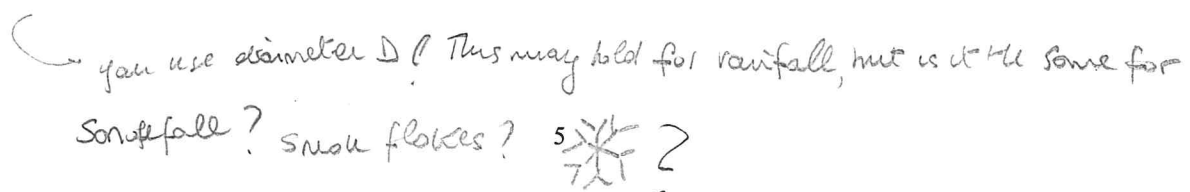 you use diameter D! This may hold for rainfall, but is it the same for
Snowfall? Snow flakes? 5 ?